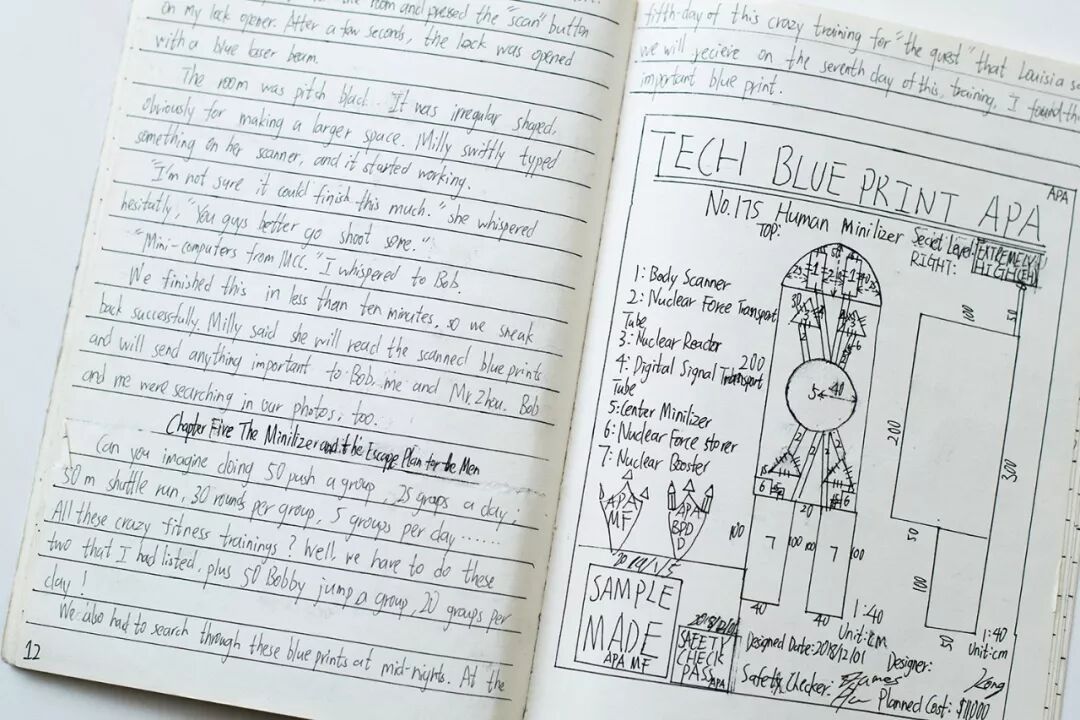 the room and pressed the "scan" button
on my lock opener. After a few seconds, the lock was opened
with a blue laser beam.
The room was pitch black. It was irregular shaped,
obviously for making a larger space. Milly swiftly typed
something on her scanner, and it started working.
"I'm not sure it could finish this much." she whispered
hesitatly, "You guys better go shoot some."
"Mini-computers from MCC." I whispered to Bob.
We finished this in less than ten minutes, so we sneak
back successfully. Milly said she will read the scanned blue prints
and will send anything important to Bob, me and Mr. Zhou. Bob
and me were searching in our photos, too.
Chapter Five The Minilizer and the Escape Plan for the Men
Can you imagine doing 50 push a group, 25 graps a day,
50 m shuttle run, 30 rounds per group, 5 groups per day ......
All these crazy fitness trainings? Well, we have to do these
two that I had listed, plus 50 Bobby jump a group, 20 groups per
day!
We also had to search through these blue prints at mid-nights. At the
12
fifth-day of this crazy training for "the quest" that Louisia
we will recieve on the seventh day of this, training, I found
important blue print.
TECH BLUE PRINT APA
APA
No.175 Human Minilizer Seciet Level: EXTREMELY
HIGH (EH)
TOP:
RIGHT:
1: Body Scanner
2: Nuclear Force Transport
Tube
3: Nuclear Reactor
4: Digital Signal Transport
Tube
5: Center Minilizer
6: Nuclear Force Storer
7: Nuclear Booster
200
5
40
6
20
7
7
100
100
100
40
40
1:40
Unit:cm
100
50
200
300
50
100
50
1:40
Unit:cm
APA
MF
APA
BPD
D
SAMPLE
MADE
APA MF
SAFETY
CHECK
PASS
APA
Designed Date:2018/12/01
Designer:
Kong
Safety Checker: James
Planned Cost: $11,000